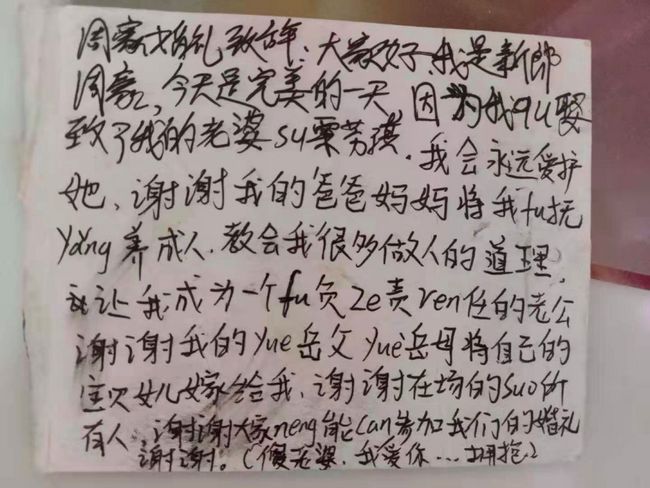 周豪婚礼致辞、大家好、我是新郎
周豪，今天是完美的一天，因为我qu娶
致了我的老婆su粟芳琪．我会永远爱护
她、谢谢我的爸爸妈妈将我fu抚
yang养成人．教会我很多做人的道理．
让我成为一个fu负ze责ren任的老公
谢谢我的yue岳父yue岳母将自己的
宝贝女儿嫁给我、谢谢在场的suo所
有人，谢谢大家neng能can参加我们的婚礼
谢谢。（傻老婆．我爱你…拥抱）